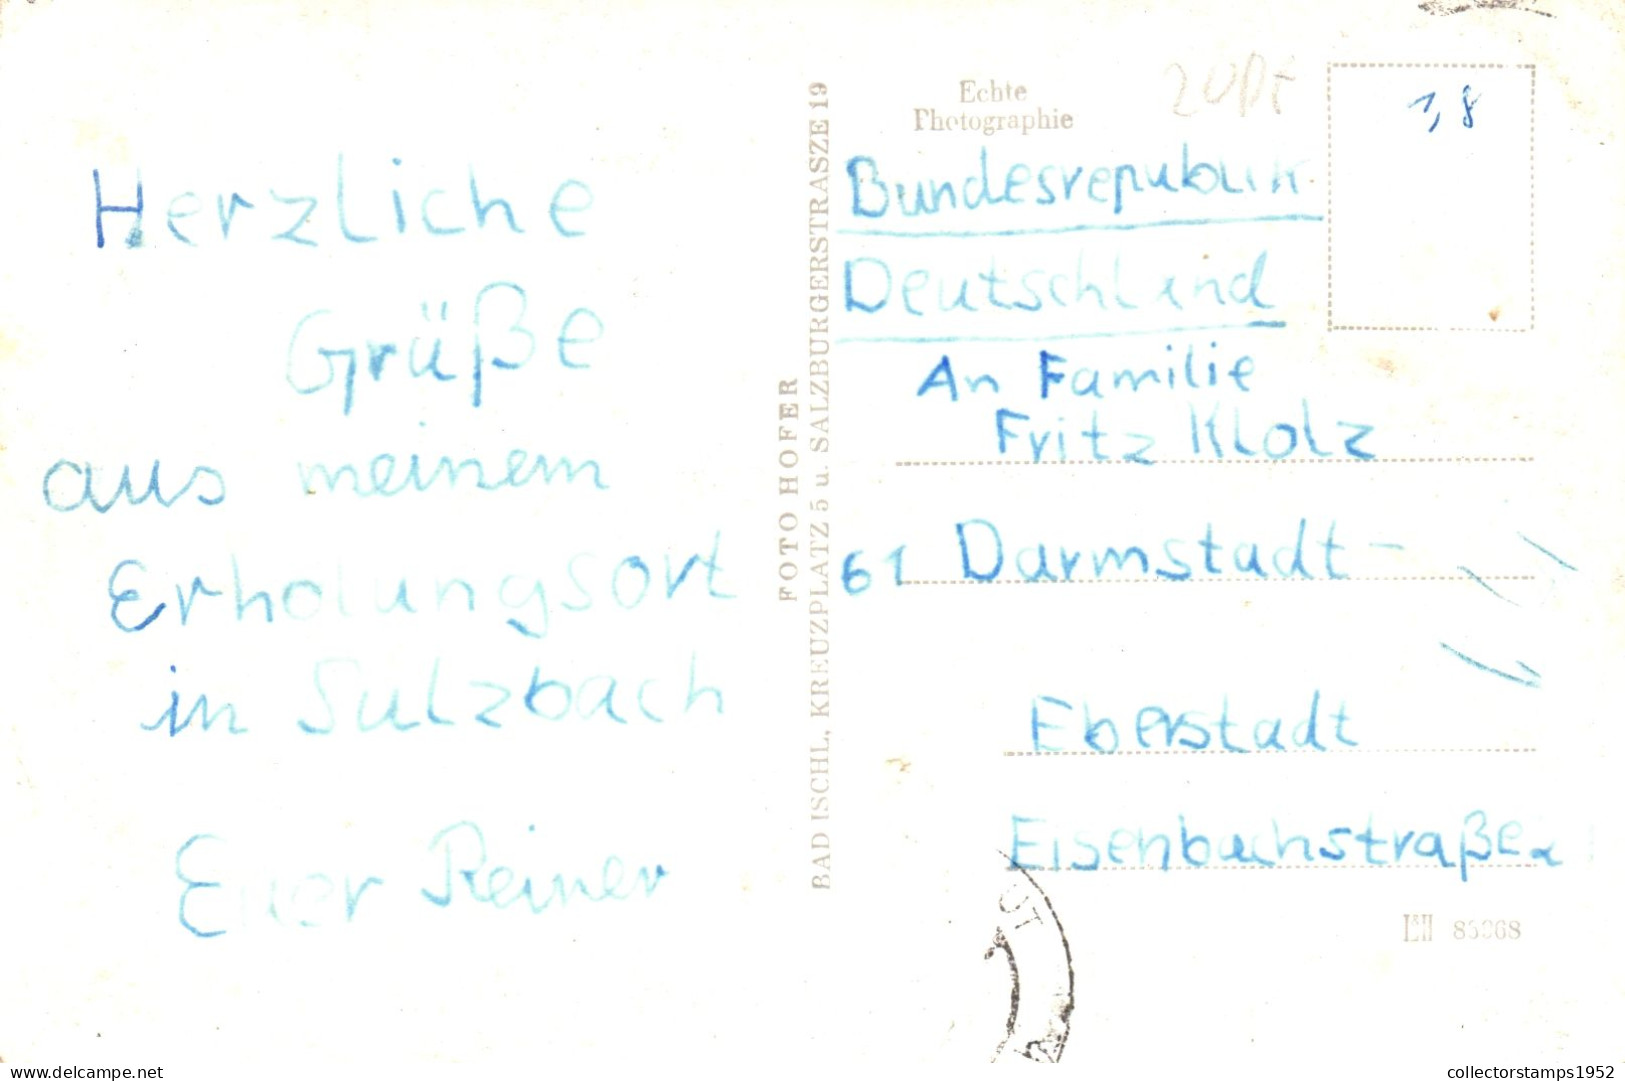 Herzliche
Grüße
aus meinem
Erholungsort
in Sulzbach
Euer Reiner
FOTO HOFER
BAD ISCHL, KREUZPLATZ 5 u. SALZBURGERSTRASZE 19
Echte
Photographie
20pf
1,8
Bundesrepublik
Deutschland
An Familie
Fritz Klolz
61 Darmstadt-
Eberstadt
Eisenbachstraße
L&H
delcampe.net
collectorstamps1952